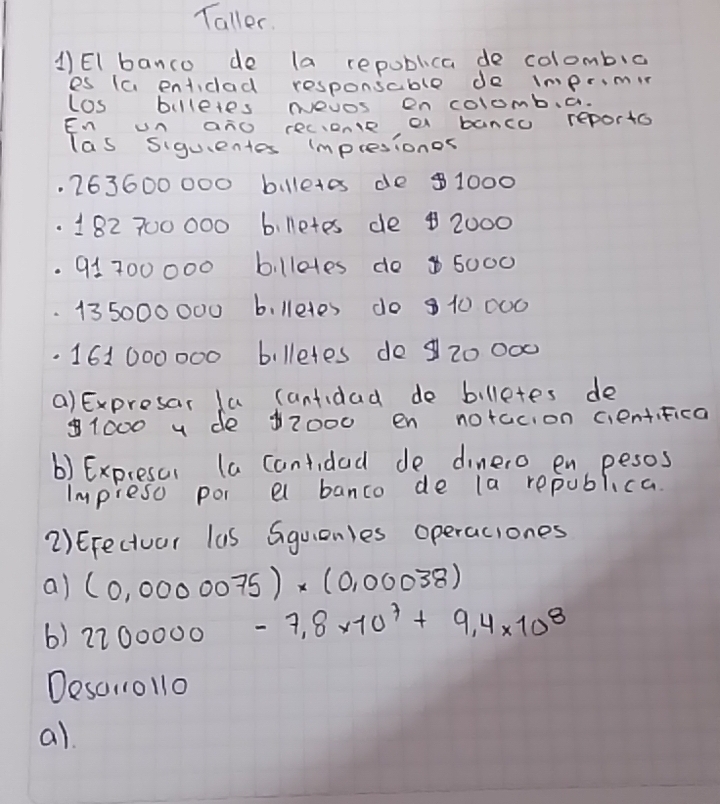 Taller.
1) El banco de la republica de colombia
es la entidad responsable de Imprimir
Los billetes nuevos en colombia.
En un año reciente, el banco reporto
las siguientes impresiones
. 263600 000 billetes de $ 1000
. 182 700 000 billetes de $ 2000
. 91 700 000 billetes de $ 5000
. 135000 000 billetes de $ 10 000
. 161 000 000 billetes de $ 20 000
a) Expresar la cantidad de billetes de
$ 1000 y de $2000 en notacion cientifica
b) Expresar la cantidad de dinero en pesos
Impreso por el banco de la republica.
2) Efectuar las siguientes operaciones
a) (0,000 0075) × (0,00038)
b) 2200000 - 7,8 × 10⁷ + 9,4 × 10⁸
Desarrollo
a).